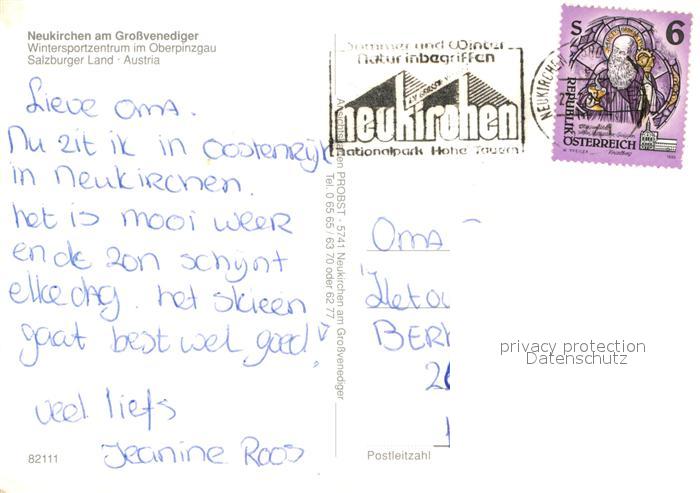 Neukirchen am Großvenediger
Wintersportzentrum im Oberpinzgau
Salzburger Land · Austria
Lieve oma.
Nu zit ik in Oostenrijk
in Neukirchen.
het is mooi weer
en de zon schijnt
elke dag. het skieen
gaat best wel goed!
veel liefs
Jeanine Roos
82111
Sommer und Winter
Natur inbegriffen
neukirchen
Nationalpark Hohe Tauern
NEUKIRCHE
S 6
REPUBLIK
ÖSTERREICH
PROBST - 5741 Neukirchen am Großvenediger
Tel. 0 65 65 / 63 70 oder 62 77
OMA
BER
2
Postleitzahl
privacy protection
Datenschutz